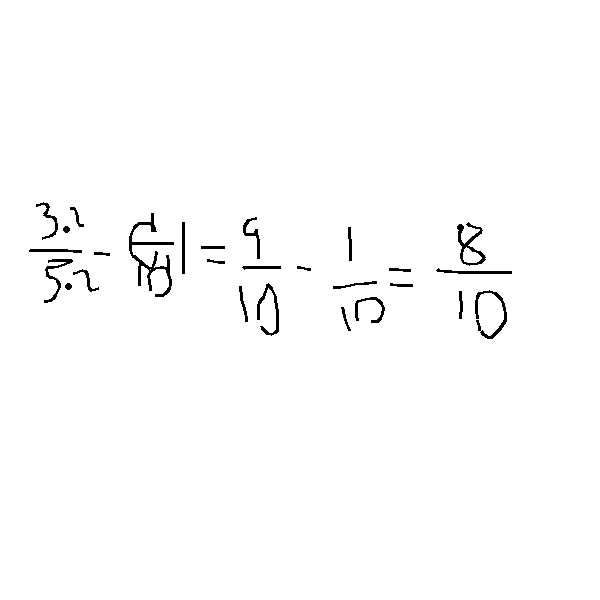 3.2/5.2 - 1/10 = 9/10 - 1/10 = 8/10